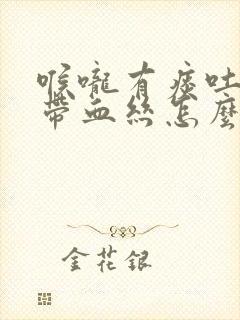 喉嚨有痰吐
帶血絲怎麼
金花銀